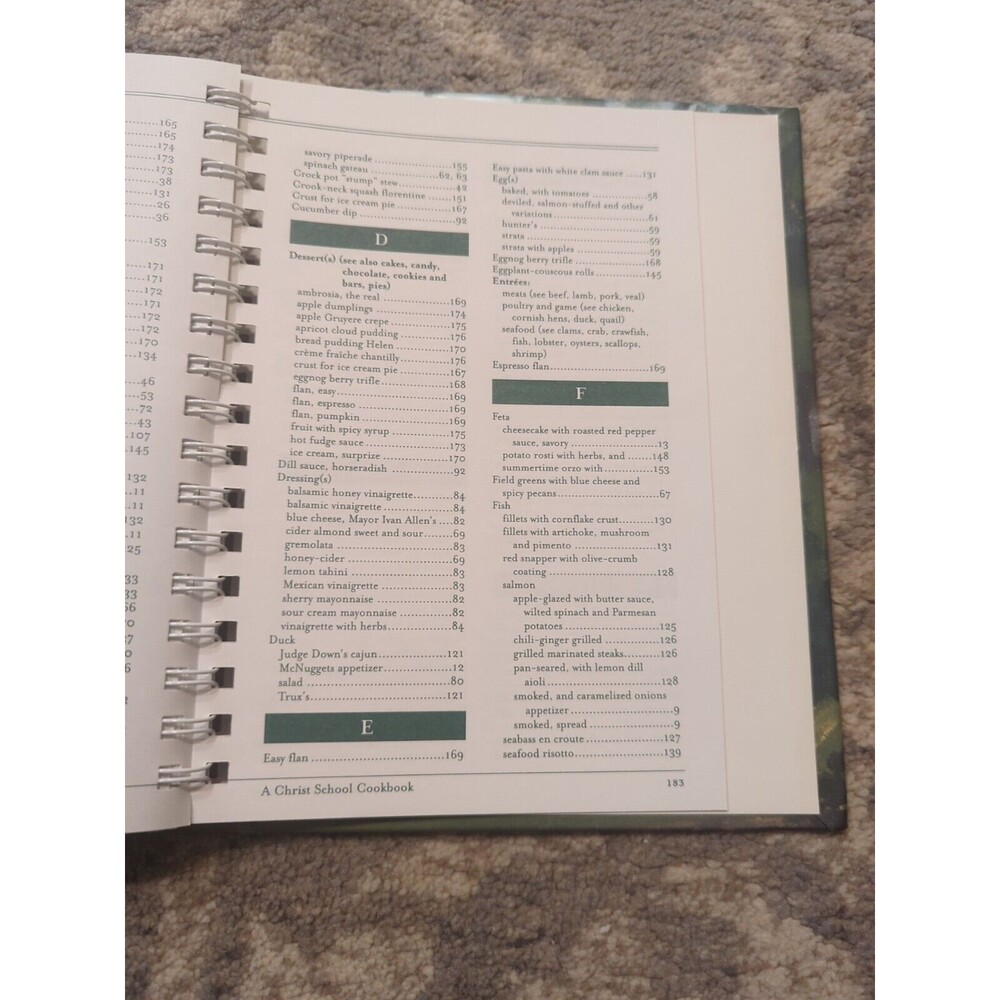 165
165
174
173
173
38
131
26
36
153
171
171
172
171
172
172
170
134
46
53
72
43
107
145
132
11
132
11
25
33
33
66
70
27
6
savory piperade 155
spinach gateau 62, 63
Crock pot "stump" stew 42
Crook-neck squash florentine 151
Crust for ice cream pie 167
Cucumber dip 92
D
Dessert(s) (see also cakes, candy,
chocolate, cookies and
bars, pies)
ambrosia, the real 169
apple dumplings 174
apple Gruyere crepe 175
apricot cloud pudding 176
bread pudding Helen 170
crème fraîche chantilly 176
crust for ice cream pie 167
eggnog berry trifle 168
flan, easy 169
flan, espresso 169
flan, pumpkin 169
fruit with spicy syrup 175
hot fudge sauce 173
ice cream, surprize 170
Dill sauce, horseradish 92
Dressing(s)
balsamic honey vinaigrette 84
balsamic vinaigrette 84
blue cheese, Mayor Ivan Allen's 82
cider almond sweet and sour 69
gremolata 83
honey-cider 69
lemon tahini 83
Mexican vinaigrette 83
sherry mayonnaise 82
sour cream mayonnaise 82
vinaigrette with herbs 84
Duck
Judge Down's cajun 121
McNuggets appetizer 12
salad 80
Trux's 121
E
Easy flan 169
Easy pasta with white clam sauce 131
Egg(s)
baked, with tomatoes 58
deviled, salmon-stuffed and other
variations 61
hunter's 59
strata 59
strata with apples 59
Eggnog berry trifle 168
Eggplant-couscous rolls 145
Entrées:
meats (see beef, lamb, pork, veal)
poultry and game (see chicken,
cornish hens, duck, quail)
seafood (see clams, crab, crawfish,
fish, lobster, oysters, scallops,
shrimp)
Espresso flan 169
F
Feta
cheesecake with roasted red pepper
sauce, savory 13
potato rosti with herbs, and 148
summertime orzo with 153
Field greens with blue cheese and
spicy pecans 67
Fish
fillets with cornflake crust 130
fillets with artichoke, mushroom
and pimento 131
red snapper with olive-crumb
coating 128
salmon
apple-glazed with butter sauce,
wilted spinach and Parmesan
potatoes 125
chili-ginger grilled 126
grilled marinated steaks 126
pan-seared, with lemon dill
aioli 128
smoked, and caramelized onions
appetizer 9
smoked, spread 9
seabass en croute 127
seafood risotto 139
A Christ School Cookbook 183